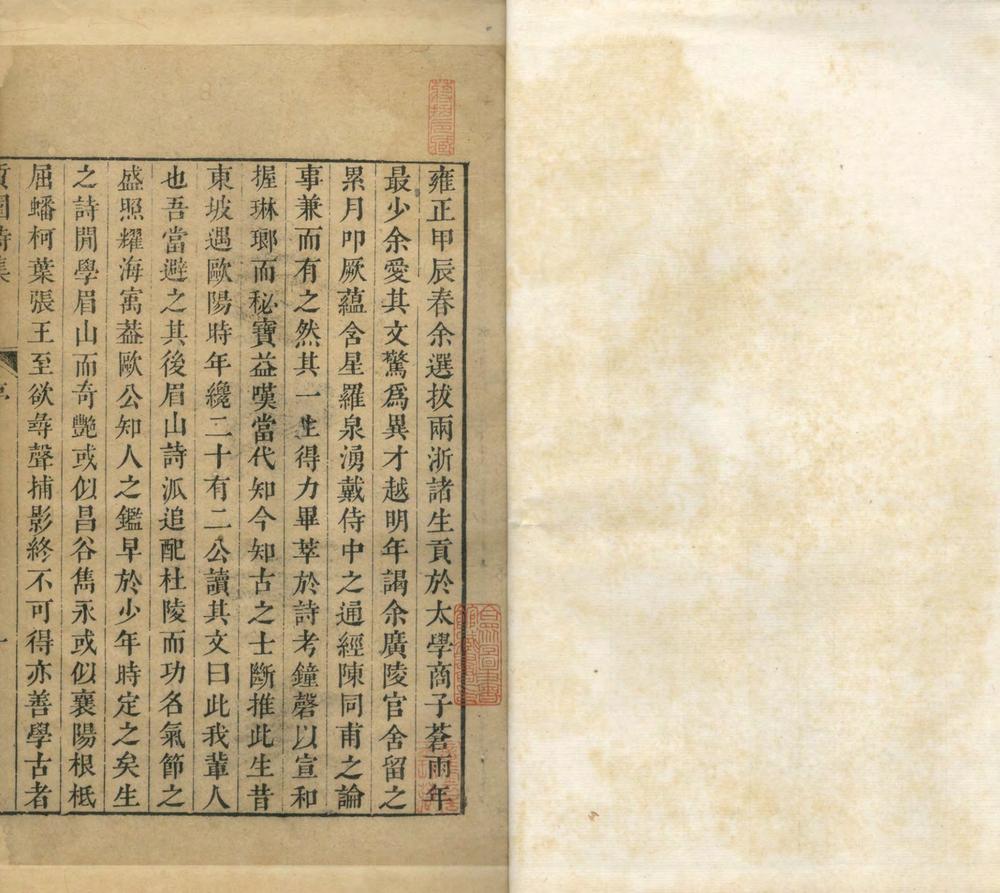 雍正甲辰春余選拔兩浙諸生貢於太學商子蒼雨年
最少余愛其文驚爲異才越明年謁余廣陵官舍留之
累月叩厥蘊含星羅泉湧戴侍中之通經陳同甫之論
事兼而有之然其一生得力畢萃於詩考鐘磬以宣和
握琳瑯而秘寶益嘆當代知今知古之士斷推此生昔
東坡遇歐陽時年纔二十有二公讀其文曰此我輩人
也吾當避之其後眉山詩派追配杜陵而功名氣節之
盛照耀海寓葢歐公知人之鑑早於少年時定之矣生
之詩開學眉山而奇艷或似昌谷雋永或似襄陽根柢
屈蟠柯葉張王至欲尋聲捕影終不可得亦善學古者
質園詩集